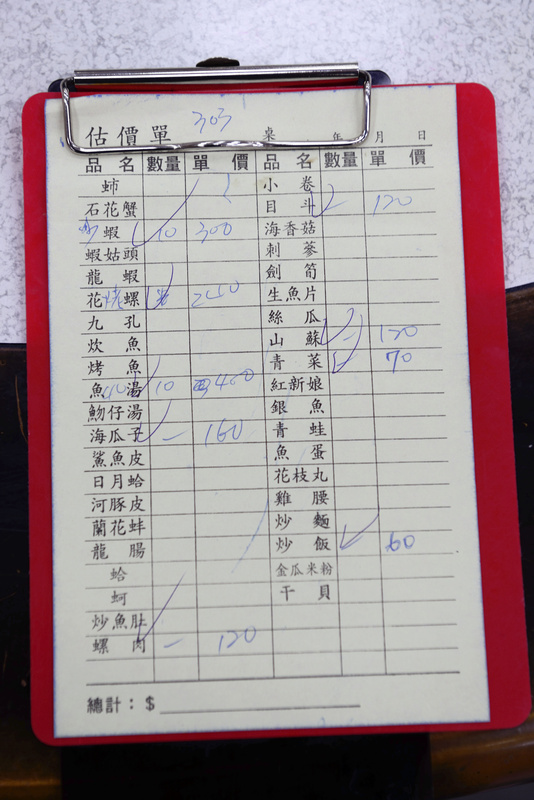 估價單 303 來 年 月 日
品名 數量 單價 品名 數量 單價
蚵 小卷
石花蟹 目斗 120
蝦 10 300 海香菇
蝦姑頭 刺蔘
龍蝦 劍筍
花螺 生魚片
九孔 絲瓜
炊魚 山蘇 一 120
烤魚 青菜 70
魚湯 10 400 紅新娘
魩仔湯 銀魚
海瓜子 一 160 青蛙
鯊魚皮 魚蛋
日月蛤 花枝丸
河豚皮 雞腰
蘭花蚌 炒麵
龍腸 炒飯 60
蛤 金瓜米粉
蚵 干貝
炒魚肚
螺肉 一 120
總計：$